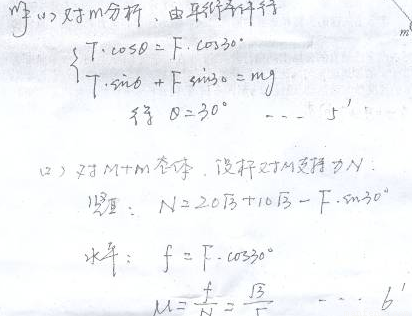 解(1)对m分析、由平衡条件得
T·cosθ=F·cos30°
T·sinθ+F sin30=mg
得 θ=30° ---- 5'
(2)对M+m整体、设杆对M支持力N.
竖直: N=20√3+10√3-F·sin30°
水平: f=F·cos30°
μ=f/N=√3/5 ---- 6'
m